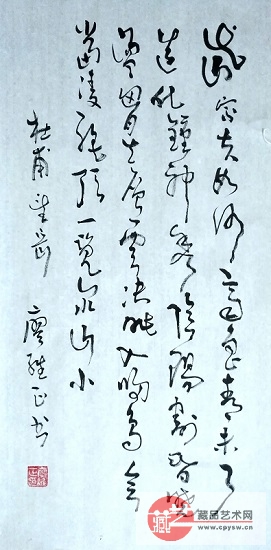 岱宗夫如何齐鲁青未了
造化钟神秀阴阳割昏晓
荡胸生层云决眦入归鸟会
当凌绝顶一览众山小
杜甫望岳
廖维正书
藏品艺术网
www.cpysw.cn